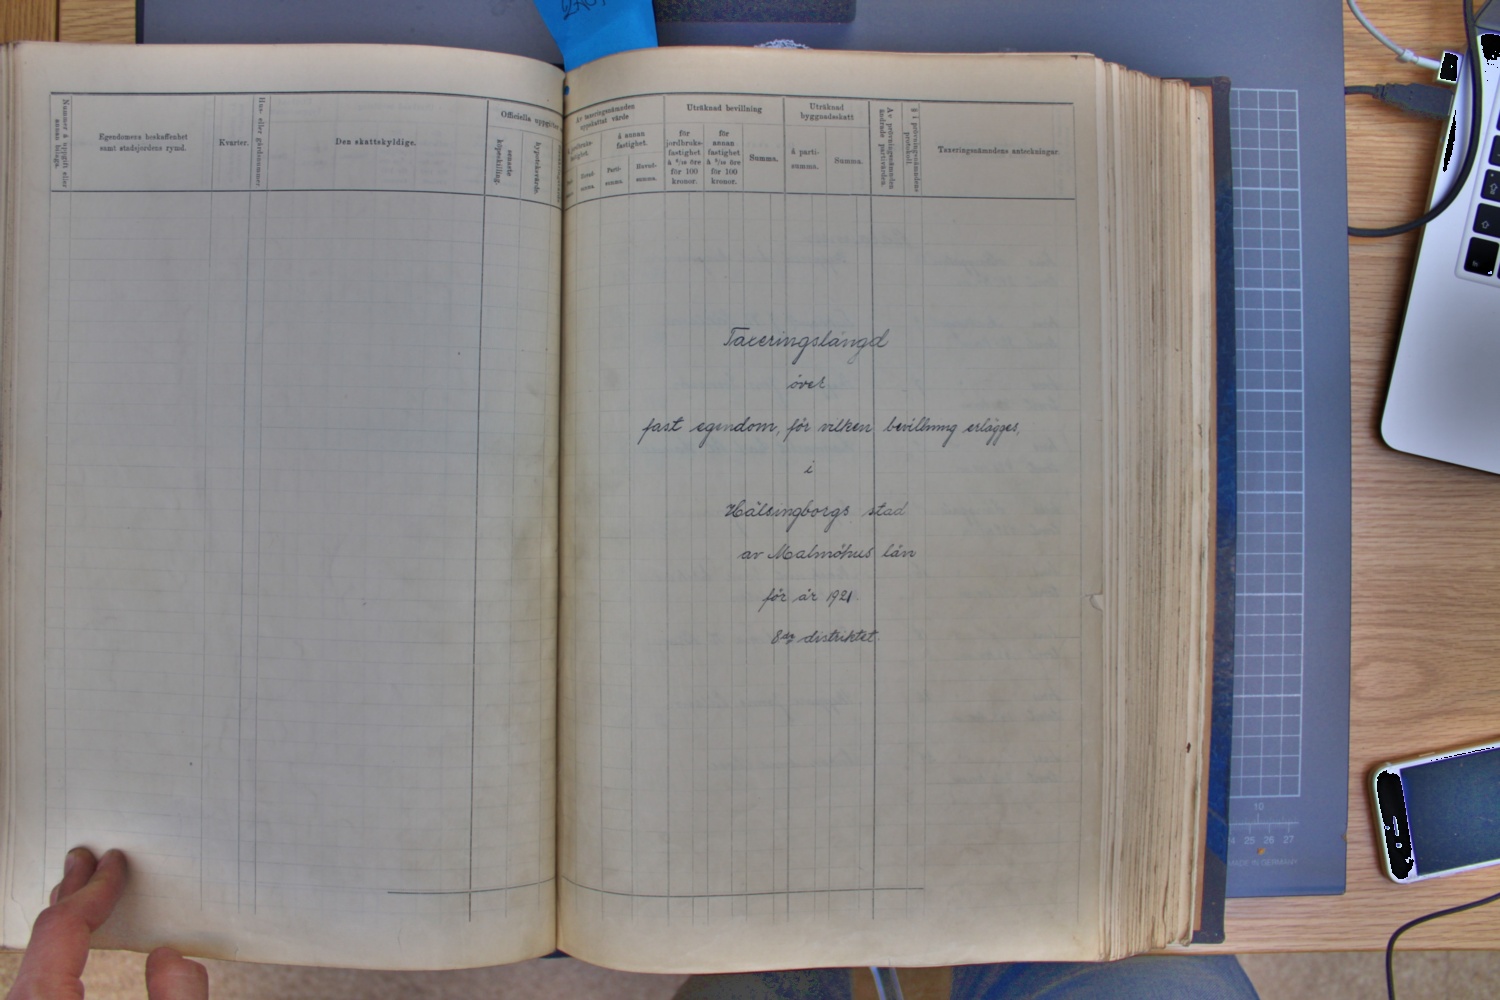 Nummer å uppgift eller
annan bilaga.
Egendomens beskaffenhet
samt stadsjordens rymd.
Kvarter.
Hus- eller gårdsnummer.
Den skattskyldige.
Officiella
senaste
köpeskilling.
Av taxeringsnämnden
uppskattat värde
å annan
fastighet.
summa.
Parti-
summa.
Huvud-
summa.
Uträknad bevillning
för
jordbruks-
fastighet
för 100
kronor.
för
annan
fastighet
för 100
kronor.
Summa.
Uträknad
byggnadsskatt
å parti-
summa.
Summa.
Av prövningsnämnden
ändrade partivärden.
§ i prövningsnämndens
protokoll.
Taxeringsnämndens anteckningar.
Taxeringslängd
över
fast egendom, för vilken bevillning erlägges,
i
Hälsingborgs stad
av Malmöhus län
för år 1921
8de distriktet.
10
24 25 26 27
MADE IN GERMANY